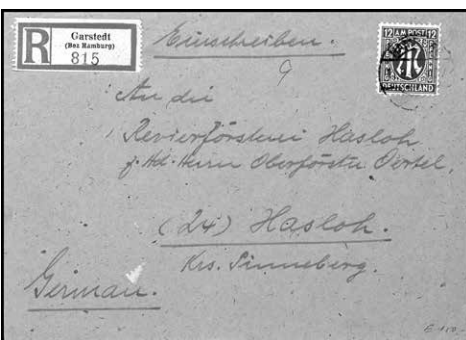 R
Garstedt
(Bez Hamburg)
815
Einschreiben.
9
12 AM POST 12
DEUTSCHLAND
An die
Revierförsterei Hasloh
z. Hd. Herrn Oberförster Oertel.
(24) Hasloh.
Krs. Pinneberg.
German.